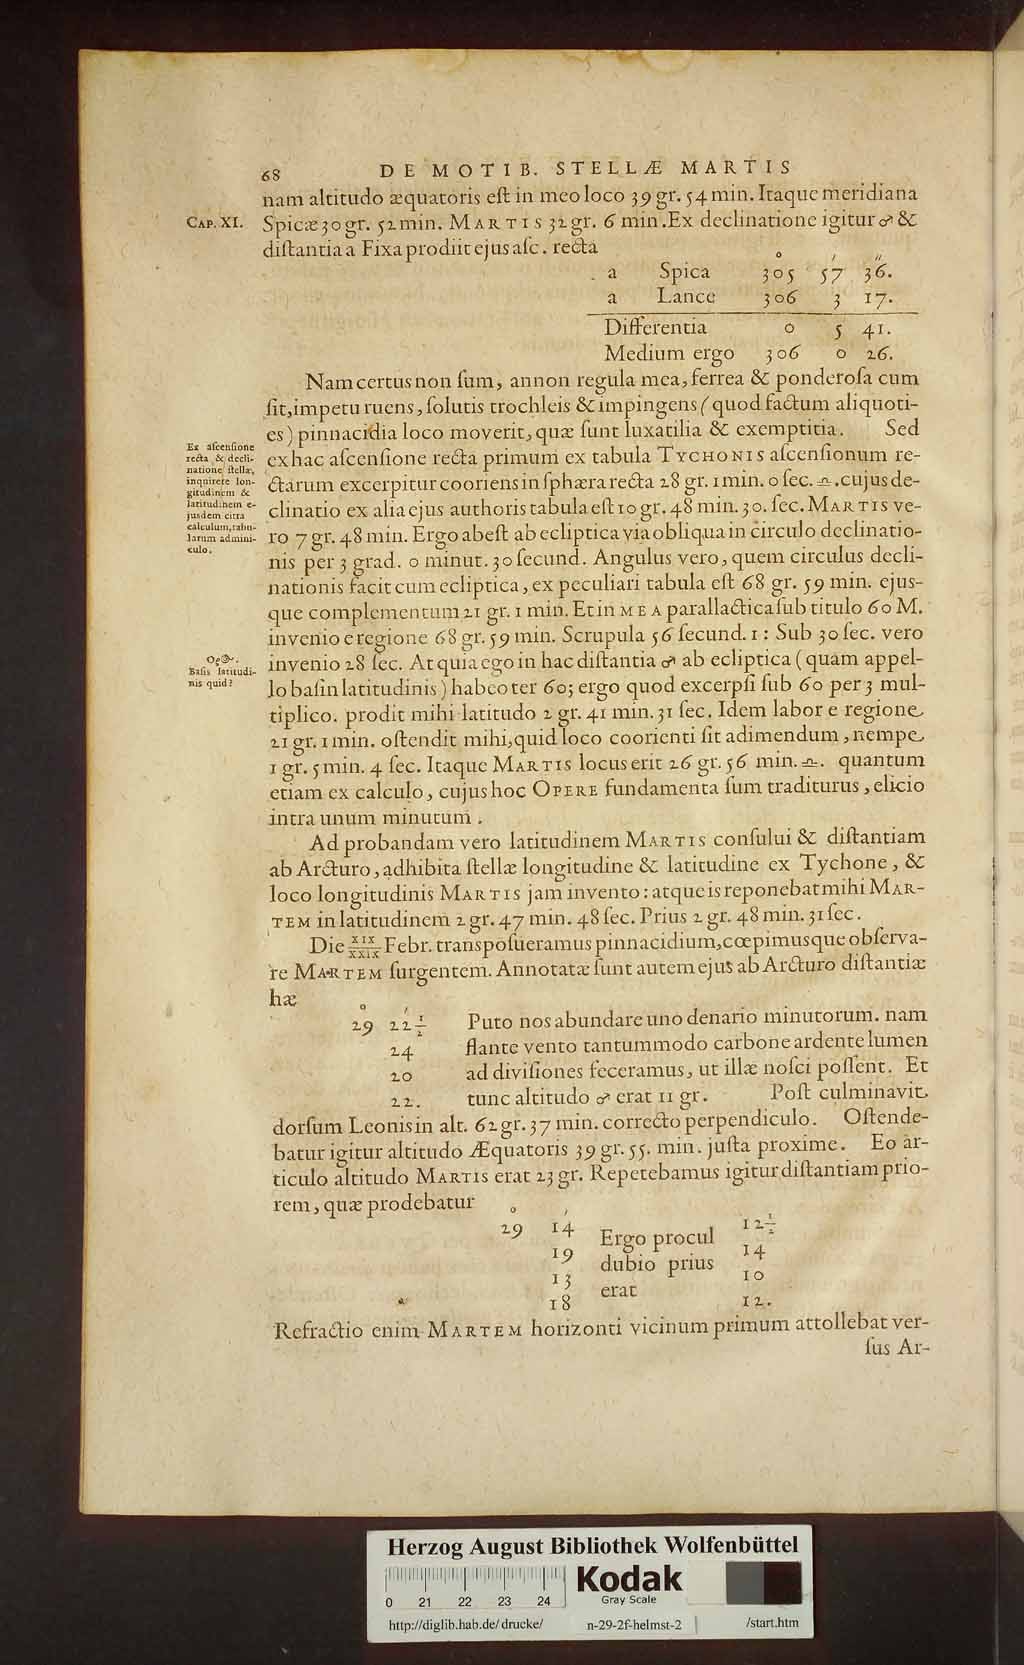 68 DE MOTIB. STELLÆ MARTIS
nam altitudo æquatoris eſt in meo loco 39 gr. 54 min. Itaque meridiana
CAP. XI.
Spicæ 30 gr. 52 min. MARTIS 32 gr. 6 min. Ex declinatione igitur ♂ &
diſtantia a Fixa prodiit ejus aſc. recta
° ′ ″
a Spica 305 57 36.
a Lance 306 3 17.
Differentia 0 5 41.
Medium ergo 306 0 26.
Nam certus non ſum, annon regula mea, ferrea & ponderoſa cum
ſit, impetu ruens, ſolutis trochleis & impingens (quod factum aliquoti-
es) pinnacidia loco moverit, quæ ſunt luxatilia & exemptitia. Sed
Ex aſcenſione
recta & decli-
natione ſtellæ,
inquirere lon-
gitudinem &
latitudinem e-
jusdem citra
calculum, tabu-
larum admini-
culo.
ex hac aſcenſione recta primum ex tabula TYCHONIS aſcenſionum re-
ctarum excerpitur cooriens in ſphæra recta 28 gr. 1 min. 0 ſec. ♎. cujus de-
clinatio ex alia ejus authoris tabula eſt 10 gr. 48 min. 30. ſec. MARTIS ve-
ro 7 gr. 48 min. Ergo abeſt ab ecliptica via obliqua in circulo declinatio-
nis per 3 grad. 0 minut. 30 ſecund. Angulus vero, quem circulus decli-
nationis facit cum ecliptica, ex peculiari tabula eſt 68 gr. 59 min. ejus-
que complementum 21 gr. 1 min. Et in MEA parallactica ſub titulo 60 M.
invenio e regione 68 gr. 59 min. Scrupula 56 ſecund. 1: Sub 30 ſec. vero
Baſis latitudi-
nis quid?
invenio 28 ſec. At quia ego in hac diſtantia ♂ ab ecliptica (quam appel-
lo baſin latitudinis) habeo ter 60; ergo quod excerpſi ſub 60 per 3 mul-
tiplico. prodit mihi latitudo 2 gr. 41 min. 31 ſec. Idem labor e regione
21 gr. 1 min. oſtendit mihi, quid loco coorienti ſit adimendum, nempe
1 gr. 5 min. 4 ſec. Itaque MARTIS locus erit 26 gr. 56 min. ♎. quantum
etiam ex calculo, cujus hoc OPERE fundamenta ſum traditurus, elicio
intra unum minutum.
Ad probandam vero latitudinem MARTIS conſului & diſtantiam
ab Arcturo, adhibita ſtellæ longitudine & latitudine ex Tychone, &
loco longitudinis MARTIS jam invento: atque is reponebat mihi MAR-
TEM in latitudinem 2 gr. 47 min. 48 ſec. Prius 2 gr. 48 min. 31 ſec.
Die XIX/XXIX Febr. transpoſueramus pinnacidium, cœpimusque obſerva-
re MARTEM ſurgentem. Annotatæ ſunt autem ejus ab Arcturo diſtantiæ
hæ
° ′
29 22½ Puto nos abundare uno denario minutorum. nam
24 flante vento tantummodo carbone ardente lumen
20 ad diviſiones feceramus, ut illæ noſci poſſent. Et
22. tunc altitudo ♂ erat 11 gr. Poſt culminavit
dorſum Leonis in alt. 62 gr. 37 min. correcto perpendiculo. Oſtende-
batur igitur altitudo Æquatoris 39 gr. 55. min. juſta proxime. Eo ar-
ticulo altitudo MARTIS erat 23 gr. Repetebamus igitur diſtantiam prio-
rem, quæ prodebatur
° ′
29 14 Ergo procul 12½
19 dubio prius 14
13 erat 10
18 12.
Refractio enim MARTEM horizonti vicinum primum attollebat ver-
ſus Ar-
Herzog August Bibliothek Wolfenbüttel
Kodak
Gray Scale
0 21 22 23 24
http://diglib.hab.de/drucke/ n-29-2f-helmst-2 /start.htm